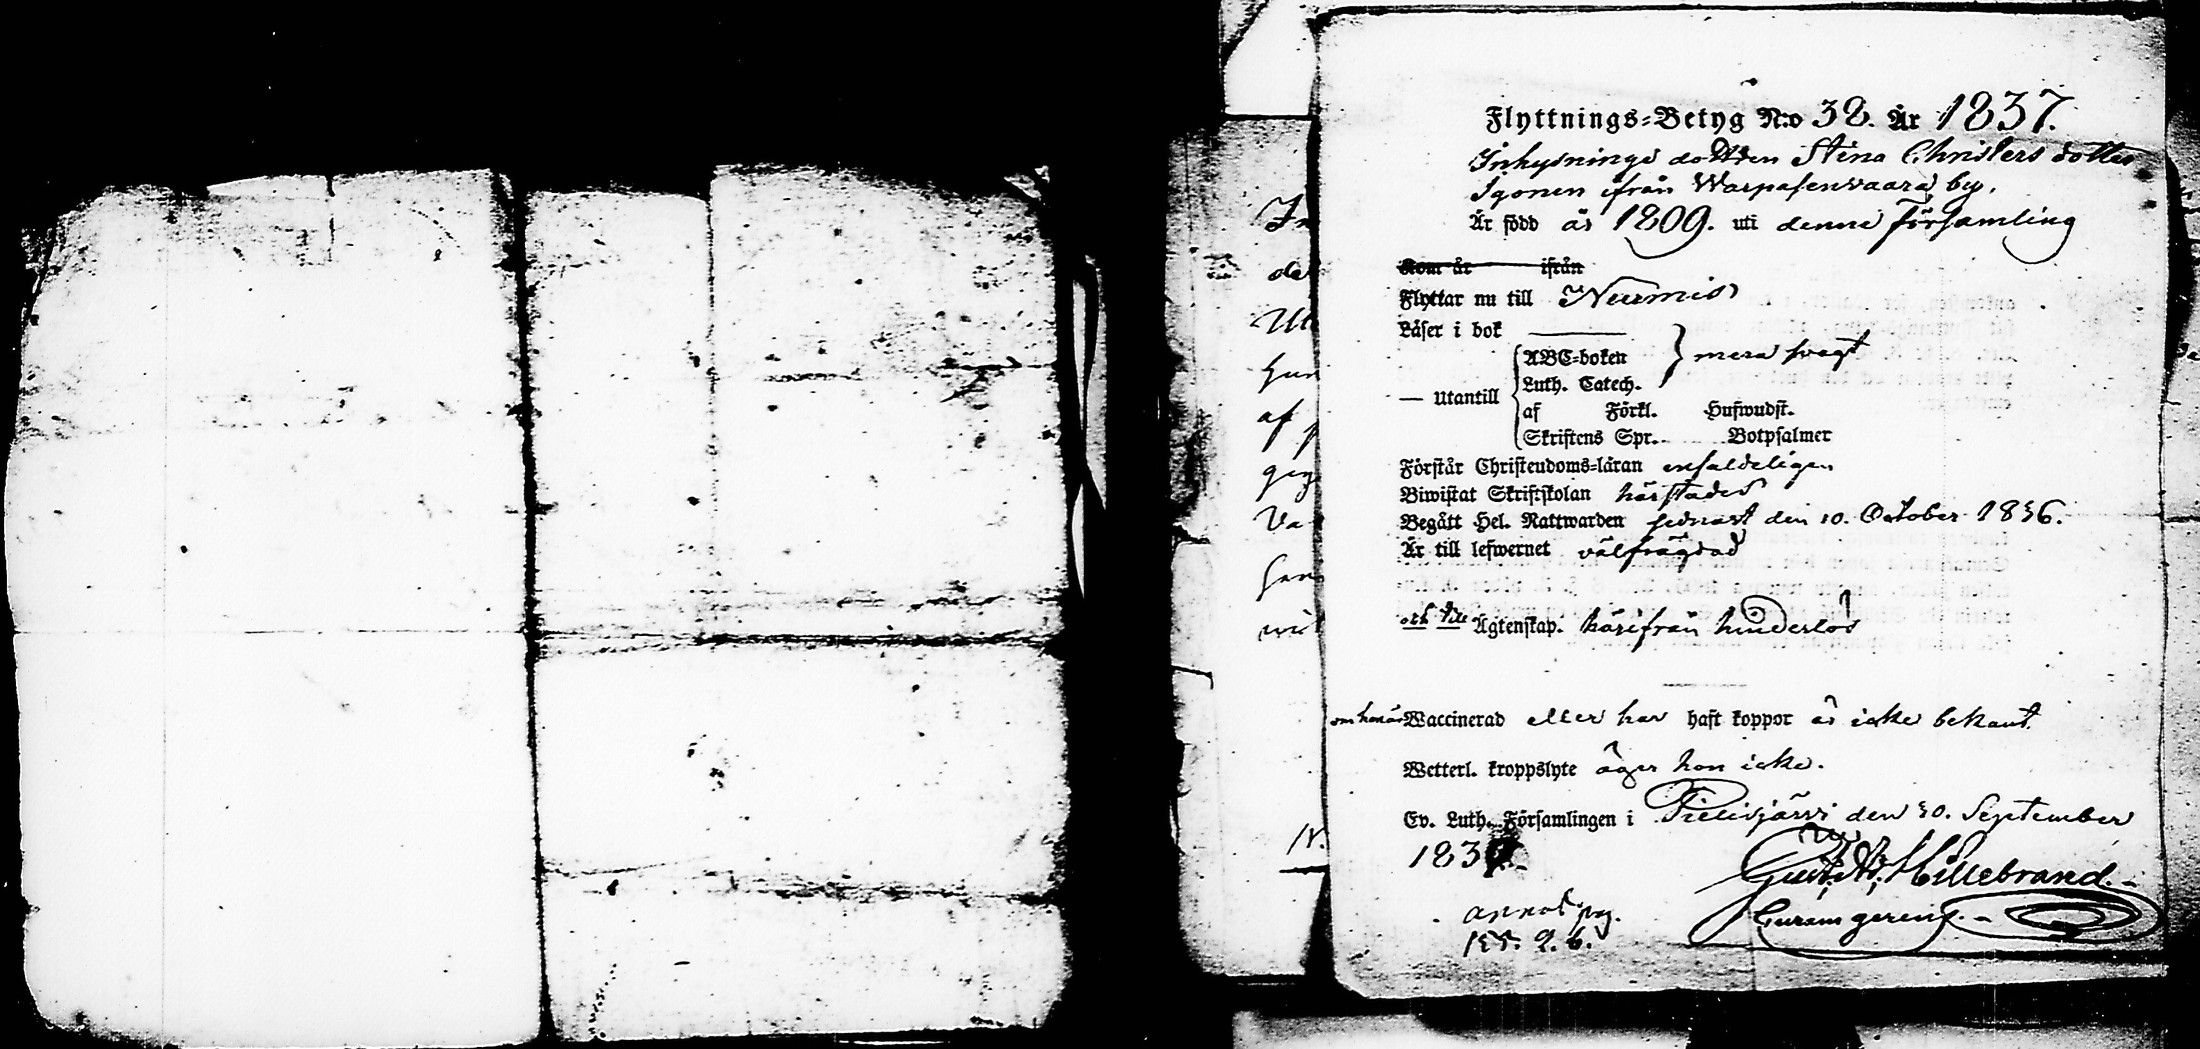 In
de
Ut
hun
af
geg
Va
wit
N.
Flyttnings-Betyg N:o 38. År 1837.
Inhysnings dottren Stina Christers dotter
Igonen ifrån Warpasenvaara by.
Är född år 1809. uti denne Församling
Kom år ifrån
Flyttar nu till Nurmis
Läser i bok
ABC-boken
mera svagt
Luth. Catech.
— Utantill
af Förkl. Hufwudst.
Skriftens Spr. Botpsalmer
Förstår Christendoms-läran enfaldeligen
Biwistat Skriftskolan härstädes
Begått Hel. Nattwarden sednast den 10. October 1836.
Är till lefwernet välfrägdad
och till Ägtenskap. härifrån hinderlös
om hon är Waccinerad eller har haft koppor är icke bekant.
Wetterl. kroppslyte äger hon icke.
Ev. Luth. Församlingen i Pielisjärvi den 30. September
1837.
Gust. Ad. Hillebrand.
Curam gerens.
annot. pag.
155. 2. b.